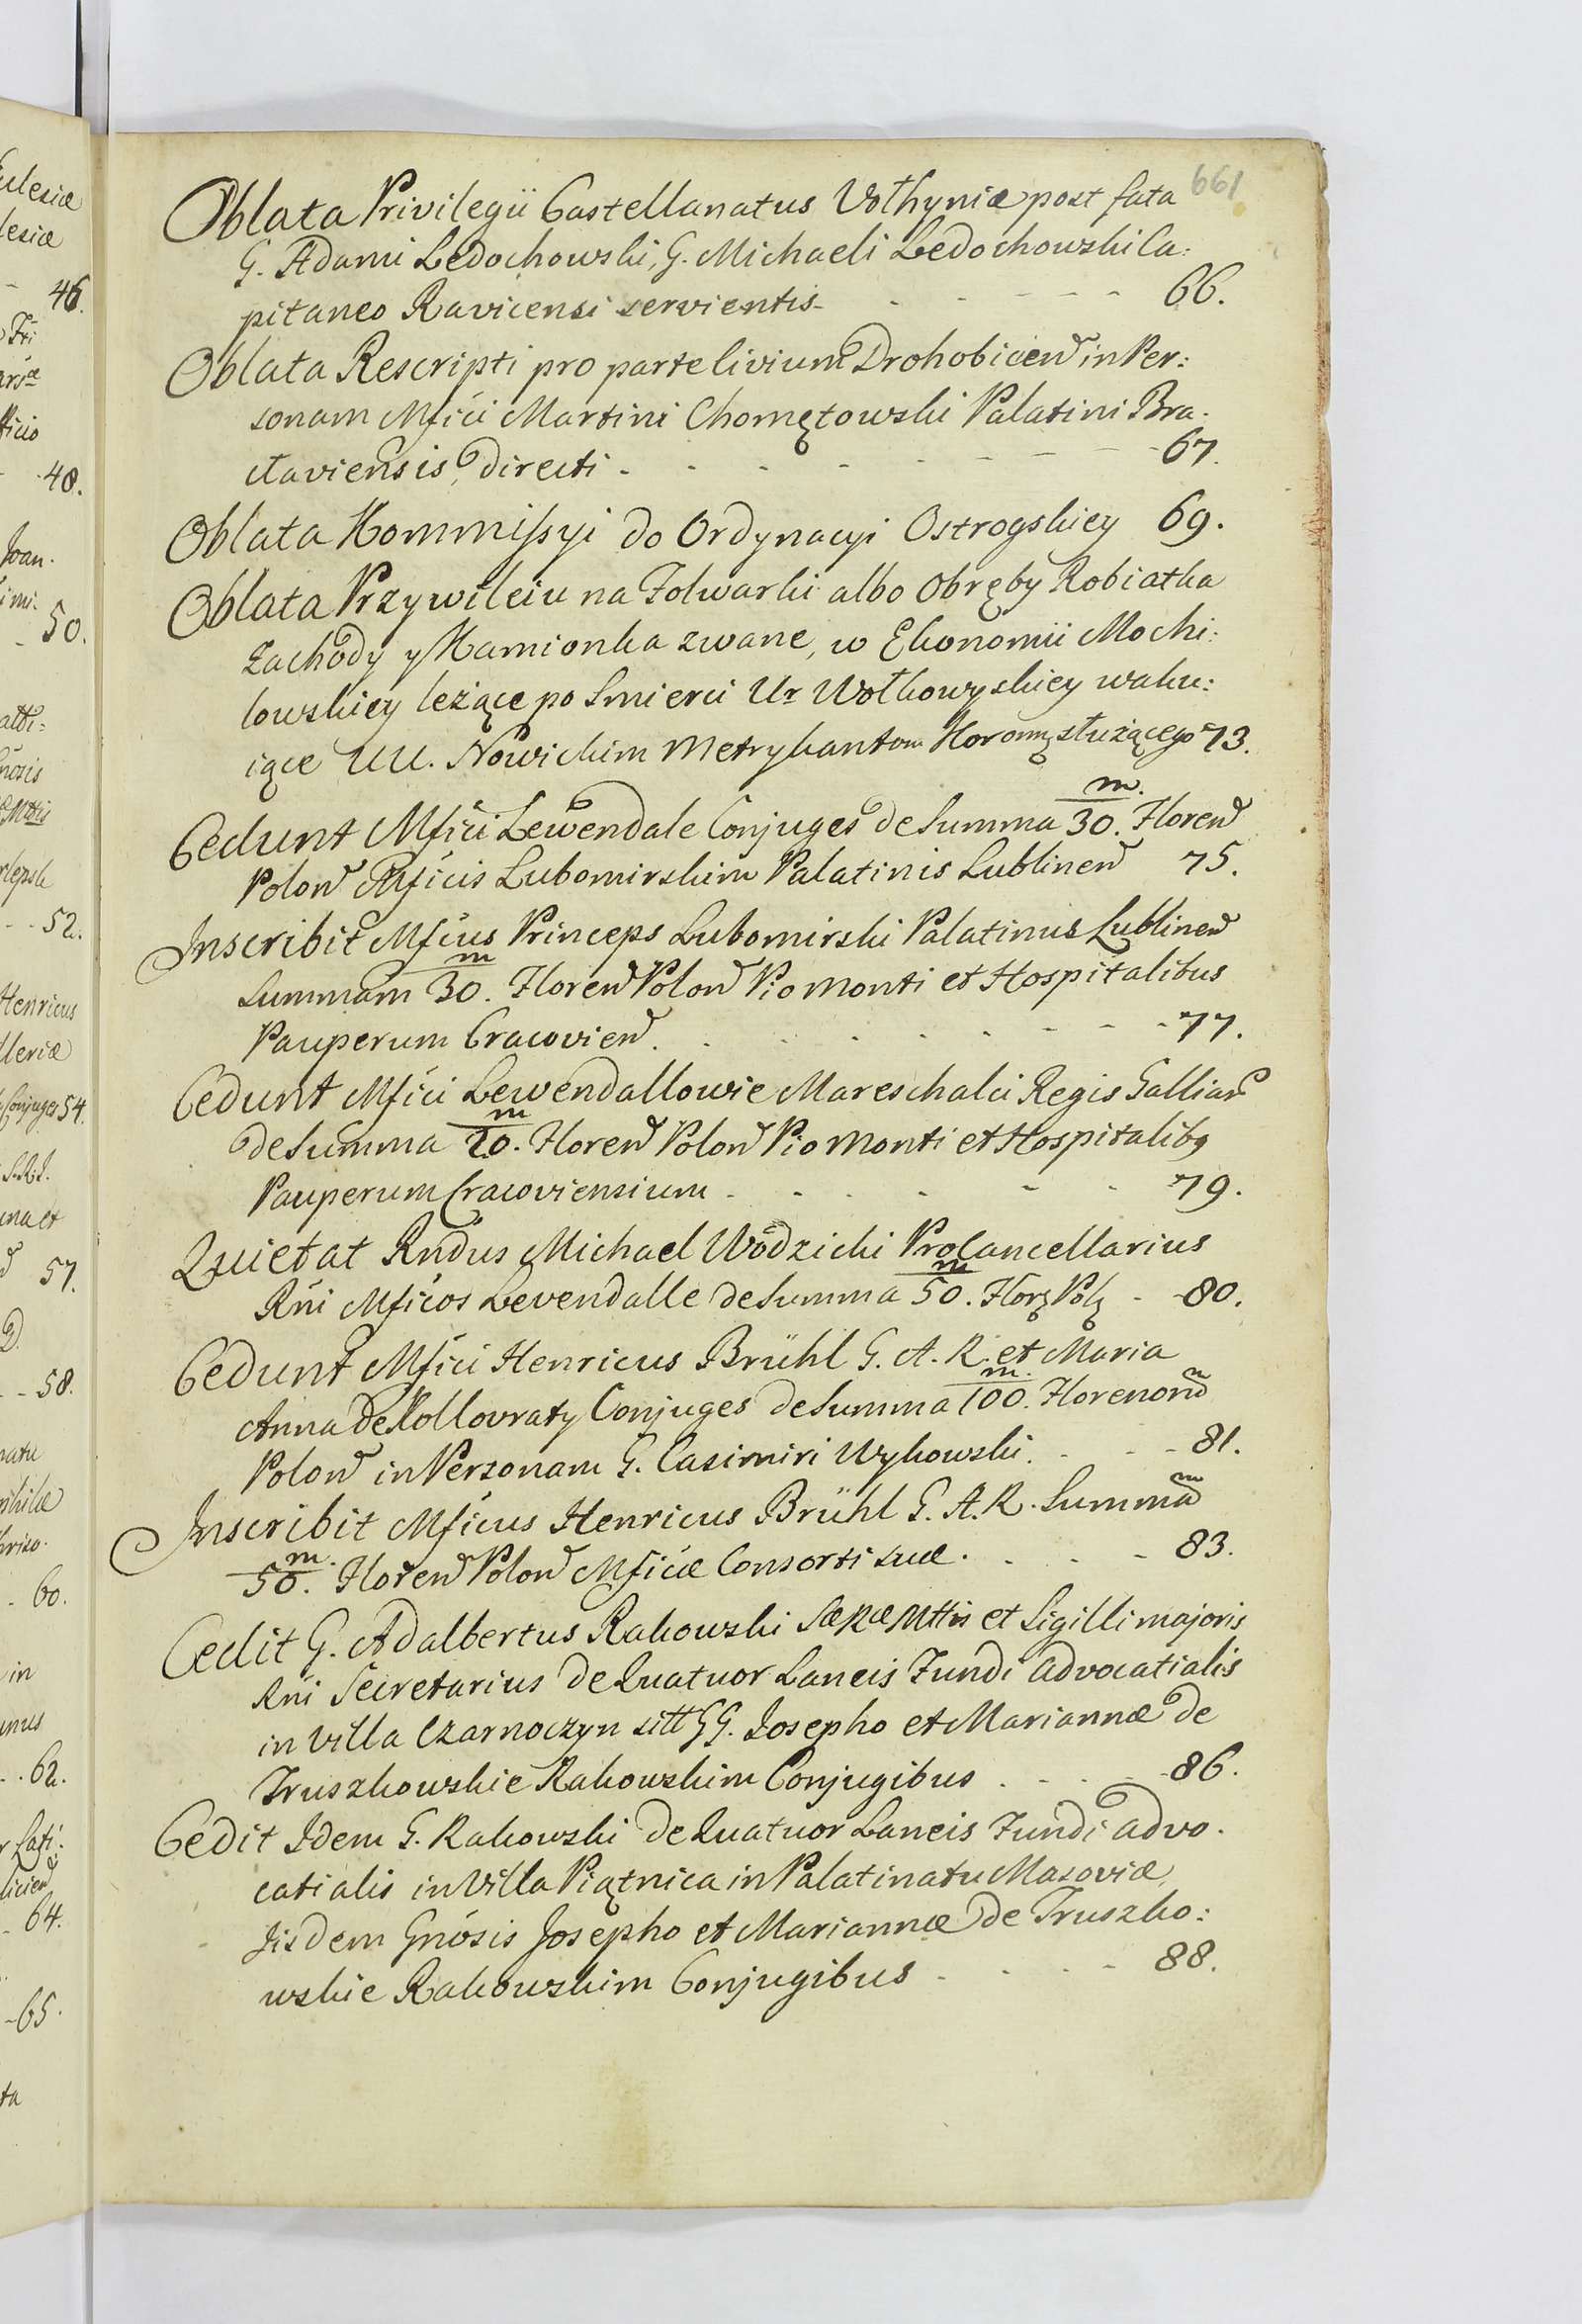 661
Oblata Privilegii Castellanatus Volhyniæ post fata
G. Adami Ledochowski, G. Michaeli Ledochowski Ca:
pitaneo Ravicensi servientis - 66.
Oblata Rescripti pro parte Civium Drohobicen in Per:
sonam Mfici Martini Chomętowski Palatini Bra-
claviensis, directi - 67.
Oblata Kommissyi do Ordynacyi Ostrogskiey 69.
Oblata Przywileiu na Folwarki albo Obręby Robiatka
Zachody y Kamionka zwane, w Ekonomii Mochi:
lowskiey leżące po Smierci Ur Wołkowyskiey waku:
iące UU. Nowickim Metrykantom Koronn. służącego 73.
Cedunt Mfici Lewendale Conjuges de Summa 30.m Floren
Polon Mficis Lubomirskim Palatinis Lublinen 75.
Inscribit Mficus Princeps Lubomirski Palatinus Lublinen
Summam 30.m Floren Polon Pio Monti et Hospitalibus
Pauperum Cracovien. - 77.
Cedunt Mfici Lewendallowie Mareschalci Regis Galliar
de Summa 20.m Floren Polon Pio Monti et Hospitalibq
Pauperum Cracoviensium - 79.
Quietat Rndus Michael Wodzicki Procancellarius
Rni Mficos Levendalle de Summa 50.m Florę Polę - 80.
Cedunt Mfici Henricus Brühl G. A. R. et Maria
Anna de Kollovraty Conjuges de Summa 100.m Florenorum
Polon in Personam G. Casimiri Wykowski. - 81.
Inscribit Mficus Henricus Brühl G. A. R. Summam
50.m Floren Polon Mficæ Consorti suæ. - 83.
Cedit G. Adalbertus Rakowski SæRæMttis et Sigilli majoris
Rni Secretarius de Quatuor Laneis Fundi advocatialis
in Villa Czarnoczyn sitt GG. Josepho et Mariannæ de
Truszkowskie Rakowskim Conjugibus - 86.
Cedit Idem G. Rakowski de Quatuor Laneis Fundi advo-
catialis in Villa Piątnica in Palatinatu Masoviæ,
Iisdem Gnosis Josepho et Mariannæ de Truszko:
wskie Rakowskim Conjugibus - 88.